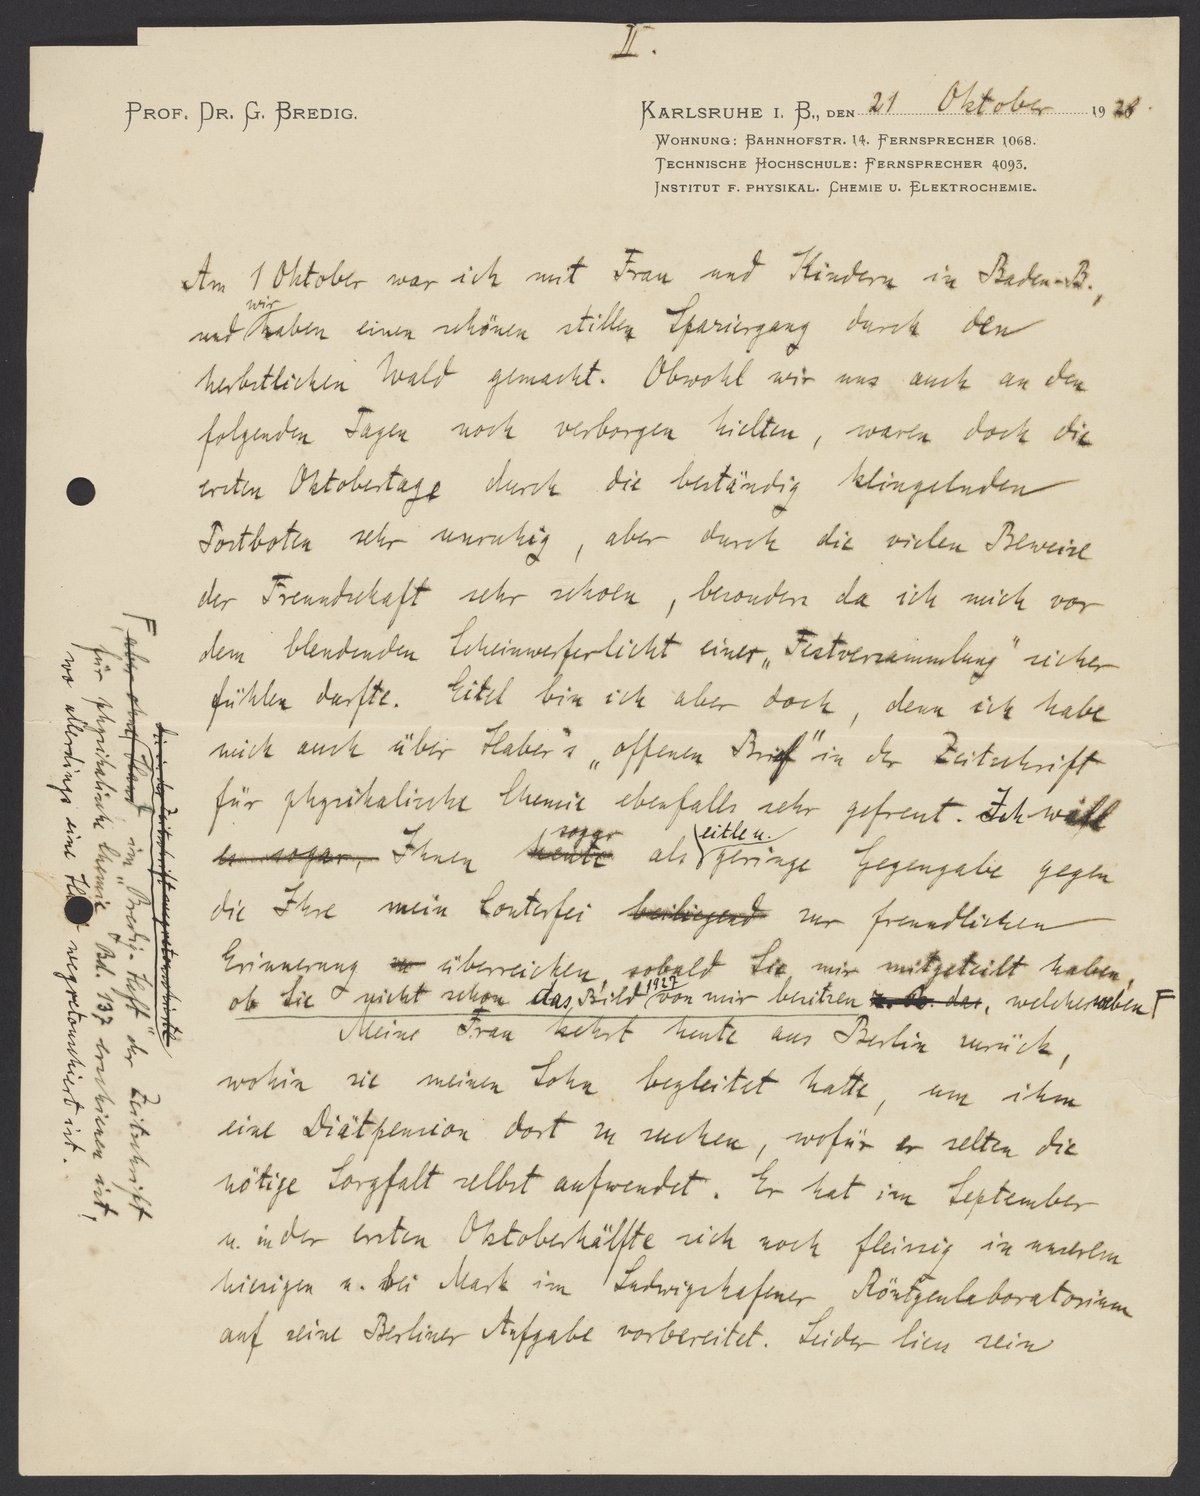 II.
PROF. DR. G. BREDIG.
KARLSRUHE I. B., DEN 21 Oktober 1928.
WOHNUNG: BAHNHOFSTR. 14. FERNSPRECHER 1068.
TECHNISCHE HOCHSCHULE: FERNSPRECHER 4093.
INSTITUT F. PHYSIKAL. CHEMIE U. ELEKTROCHEMIE.
Am 1 Oktober war ich mit Frau und Kindern in Baden-B.,
wir
und haben einen schönen stillen Spaziergang durch den
herbstlichen Wald gemacht. Obwohl wir uns auch an den
folgenden Tagen noch verborgen hielten, waren doch die
ersten Oktobertage durch die beständig klingelnden
Postboten sehr unruhig, aber durch die vielen Beweise
der Freundschaft sehr schoen, besonders da ich mich vor
dem blendenden Scheinwerferlicht einer „Festversammlung" sicher
fühlen durfte. Eitel bin ich aber doch, denn ich habe
mich auch über Haber's „offenen Brief" in der Zeitschrift
für physikalische Chemie ebenfalls sehr gefreut. Ich will
sogar eitle u.
es sogar, Ihnen heute als geringe Gegengabe gegen
die Ihre mein Conterfei beiliegend zur freundlichen
Erinnerung zu überreichen, sobald Sie mir mitgeteilt haben,
1927
ob Sie nicht schon das Bild von mir besitzen z. B. das, welches neben F
Meine Frau kehrt heute aus Berlin zurück,
wohin sie meinen Sohn begleitet hatte, um ihm
eine Diätpension dort zu suchen, wofür er selten die
nötige Sorgfalt selbst aufwendet. Er hat im September
u. in der ersten Oktoberhälfte sich noch fleissig in unserem
hiesigen u. bei Mark im Ludwigshafener Röntgenlaboratorium
auf seine Berliner Aufgabe vorbereitet. Leider liess sein
die in der Zeitschrift wegretouchierte
F aber ohne Hand im „Bredig-Heft" der Zeitschrift
für physikalische Chemie Bd. 137 erschienen ist,
wo allerdings eine Hand wegretouchiert ist.